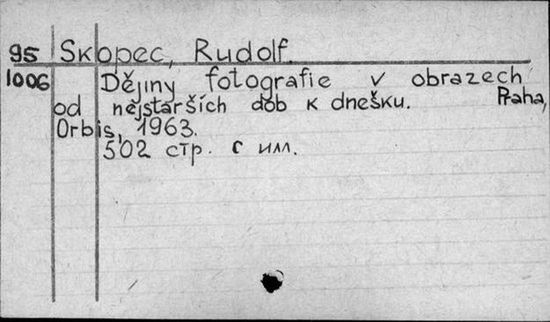 95 Skopec, Rudolf.
1006 Dějiny fotografie v obrazech
od nejstarších dob k dnešku. Praha,
Orbis, 1963.
502 стр. с илл.